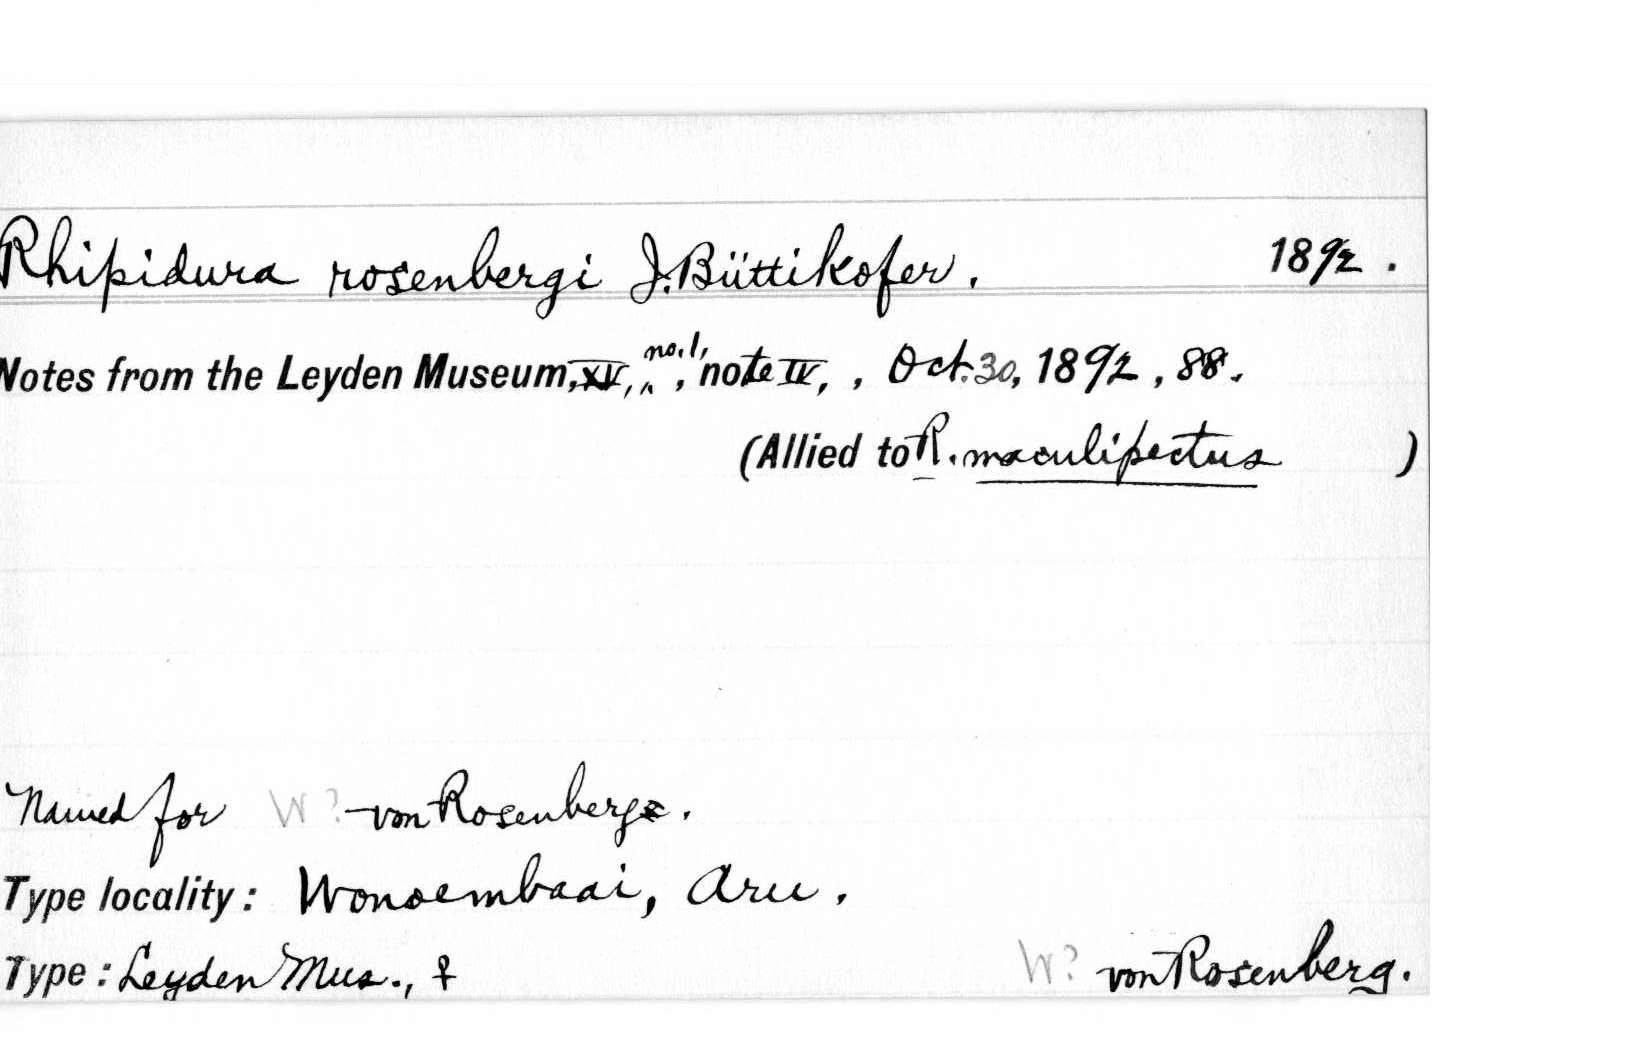 Rhipidura rosenbergi J. Büttikofer. 1892.
Notes from the Leyden Museum, XV, no. 1, , note IV, , Oct. 30, 1892, 88.
(Allied to R. maculipectus )
Named for W? von Rosenberg.
Type locality: Wonoembaai, Aru.
Type: Leyden Mus., ♀ W? von Rosenberg.